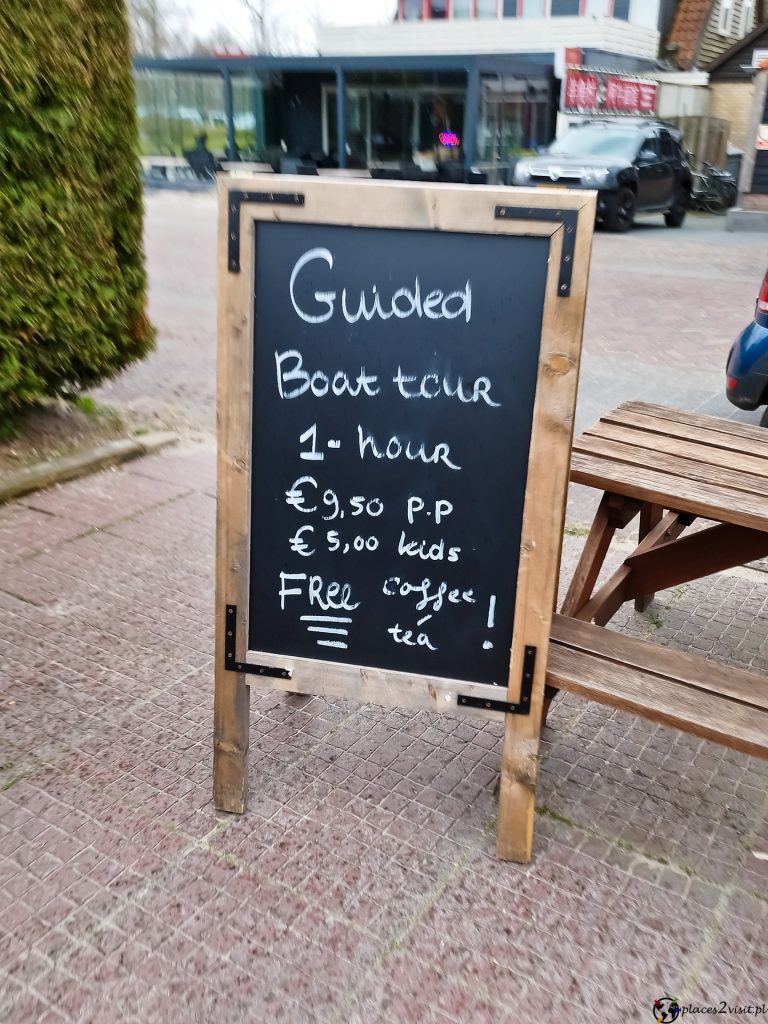 Guided
Boat tour
1- hour
€9,50 p.p
€ 5,00 kids
FRee coffee
teá !
places2visit.pl